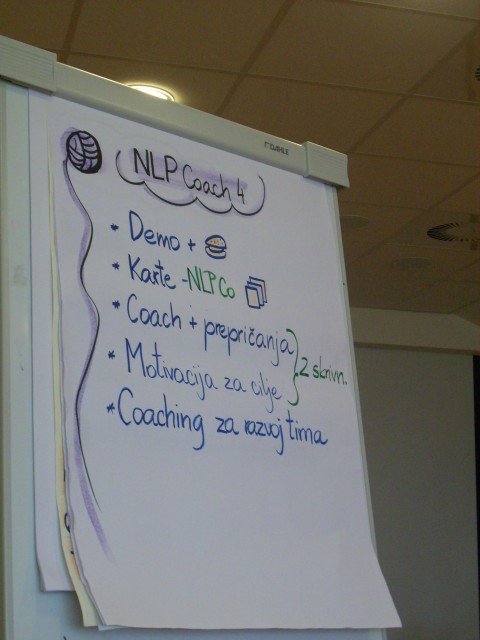 NLP Coach 4
* Demo +
* Karte - NLP Co
* Coach + prepričanja
* Motivacija za cilje
2 skrivn.
* Coaching za razvoj tima